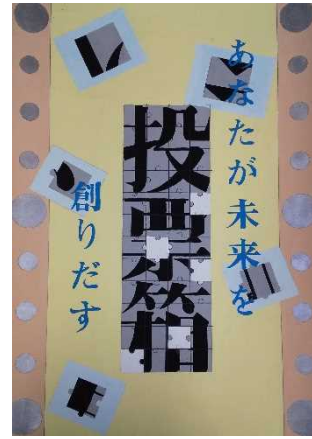 あなたが未来を
投票箱
創りだす